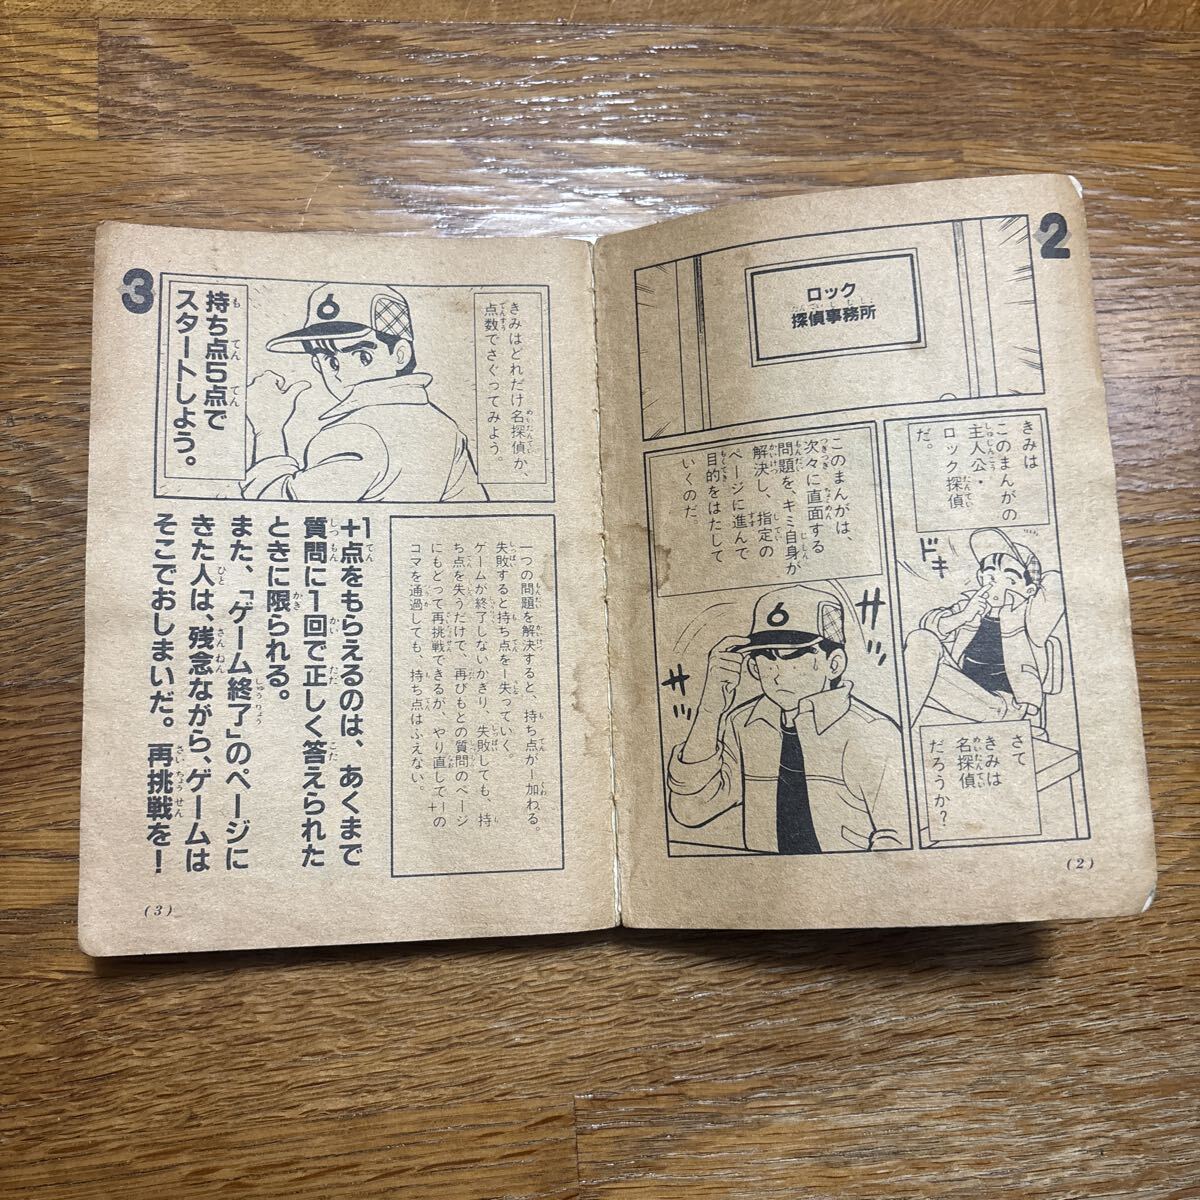 2
ロック
探偵事務所
きみは
このまんがの
主人公・
ロック探偵
だ。
ドキ
さて
きみは
名探偵
だろうか？
このまんがは、
次々に直面する
問題を、キミ自身が
解決し、指定の
ページに進んで
目的をはたして
いくのだ。
6
(2)
3
きみはどれだけ名探偵か、
点数でさぐってみよう。
6
持ち点5点で
スタートしよう。
一つの問題を解決すると、持ち点が一加わる。
失敗すると持ち点を一失っていく。
ゲームが終了しないかぎり、失敗しても、持
ち点を失うだけで、再びもとの質問のページ
にもどって再挑戦できるが、やり直して+1の
コマを通過しても、持ち点はふえない。
+1点をもらえるのは、あくまで
質問に1回で正しく答えられた
ときに限られる。
また、「ゲーム終了」のページに
きた人は、残念ながら、ゲームは
そこでおしまいだ。再挑戦を！
(3)